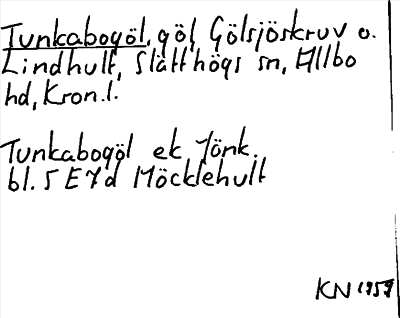 Tunkabogöl, göl, Gölsjöskruv o.
Lindhult, Slätthögs sn, Allbo
hd, Kron.l.
Tunkabogöl ek Jönk.
bl. 5 E7d Möcklehult
KN 1959